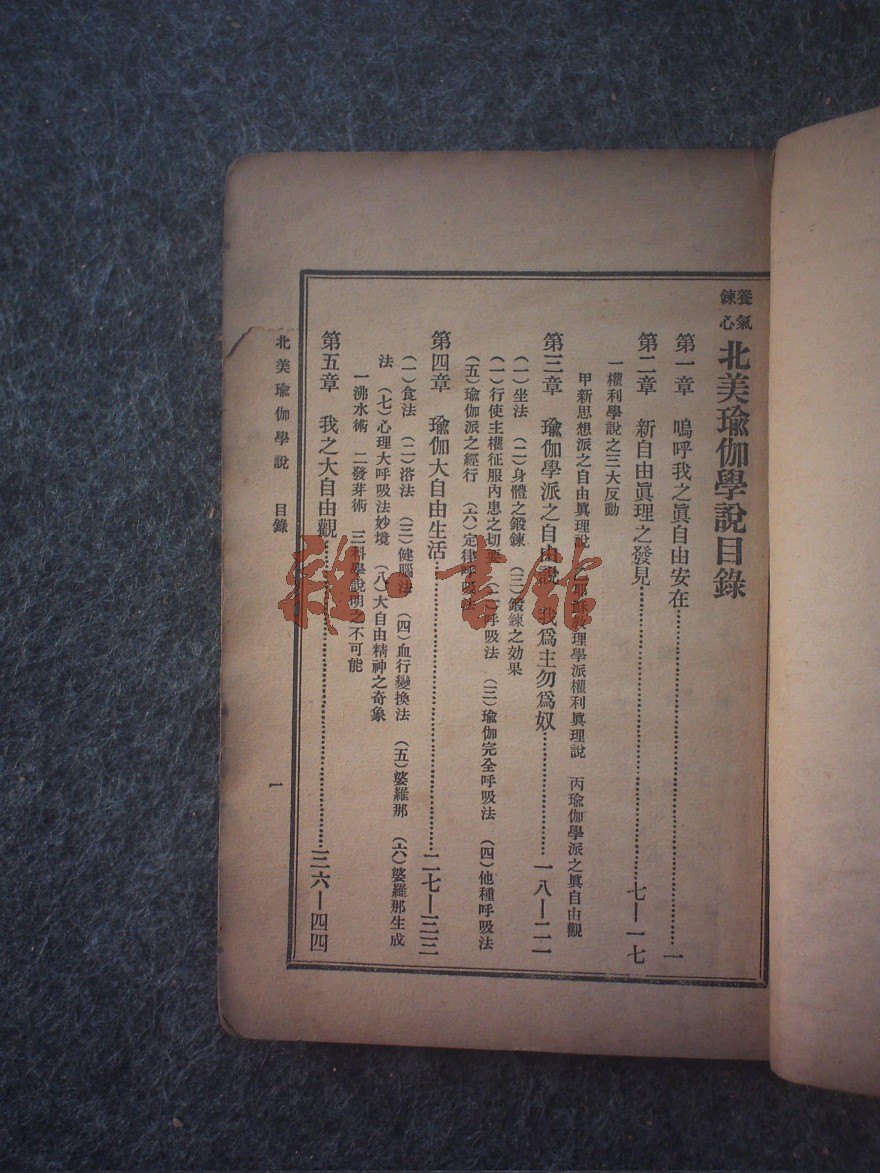 養氣
鍊心
北美瑜伽學說目錄
第一章　嗚呼我之眞自由安在……一
第二章　新自由眞理之發見……七—一七
一權利學說之三大反動
甲新思想派之自由眞理說　乙耶穌敎理學派權利眞理說　丙瑜伽學派之眞自由觀
第三章　瑜伽學派之自由說　我爲主勿爲奴……一八—二一
（一）坐法　（二）身體之鍛鍊　（三）鍛鍊之効果
（一）行使主權征服內患之切要　（二）呼吸法　（三）瑜伽完全呼吸法　（四）他種呼吸法
（五）瑜伽派之經行　（六）定律呼吸法
第四章　瑜伽大自由生活……二七—三三
（一）食法　（二）浴法　（三）健腦法　（四）血行變換法　（五）婆羅那　（六）婆羅那生成
法　（七）心理大呼吸法妙境　（八）大自由精神之奇象
一沸水術　二發芽術　三科學說明之不可能
第五章　我之大自由觀……三六—四四
北美瑜伽學說　目錄
一
雜·書館